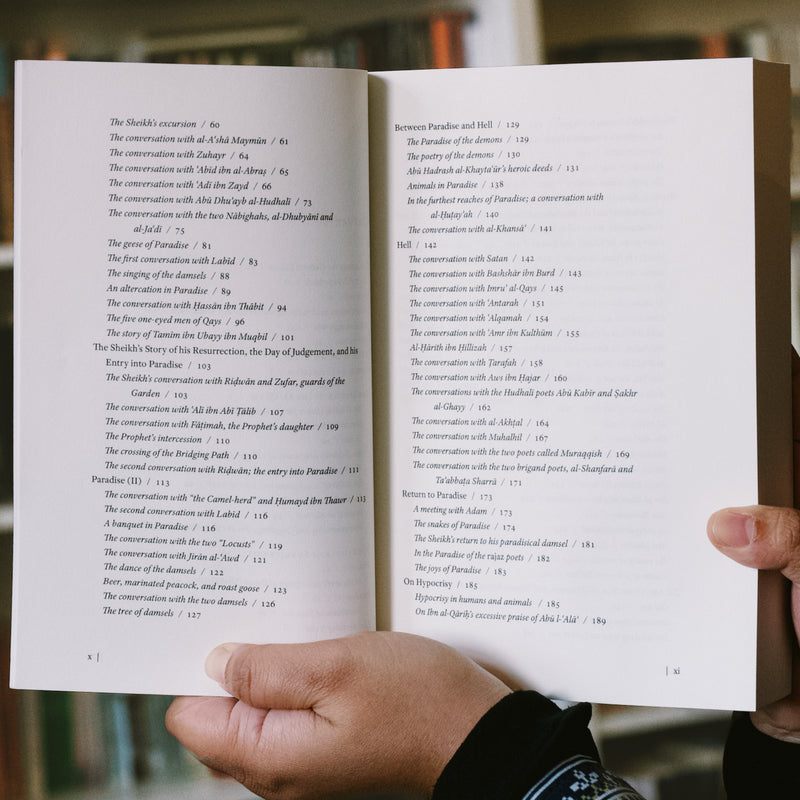 The Sheikh's excursion / 60
The conversation with al-Aʿshā Maymūn / 61
The conversation with Zuhayr / 64
The conversation with ʿAbīd ibn al-Abraṣ / 65
The conversation with ʿAdī ibn Zayd / 66
The conversation with Abū Dhuʾayb al-Hudhalī / 73
The conversation with the two Nābighahs, al-Dhubyānī and
al-Jaʿdī / 75
The geese of Paradise / 81
The first conversation with Labīd / 83
The singing of the damsels / 88
An altercation in Paradise / 89
The conversation with Ḥassān ibn Thābit / 94
The five one-eyed men of Qays / 96
The story of Tamīm ibn Ubayy ibn Muqbil / 101
The Sheikh's Story of his Resurrection, the Day of Judgement, and his
Entry into Paradise / 103
The Sheikh's conversation with Riḍwān and Zufar, guards of the
Garden / 103
The conversation with ʿAlī ibn Abī Ṭālib / 107
The conversation with Fāṭimah, the Prophet's daughter / 109
The Prophet's intercession / 110
The crossing of the Bridging Path / 110
The second conversation with Riḍwān; the entry into Paradise / 111
Paradise (II) / 113
The conversation with "the Camel-herd" and Ḥumayd ibn Thawr / 113
The second conversation with Labīd / 116
A banquet in Paradise / 116
The conversation with the two "Locusts" / 119
The conversation with Jirān al-ʿAwd / 121
The dance of the damsels / 122
Beer, marinated peacock, and roast goose / 123
The conversation with the two damsels / 126
The tree of damsels / 127
x |
Between Paradise and Hell / 129
The Paradise of the demons / 129
The poetry of the demons / 130
Abū Hadrash al-Khaytaʿūr's heroic deeds / 131
Animals in Paradise / 138
In the furthest reaches of Paradise; a conversation with
al-Ḥuṭayʾah / 140
The conversation with al-Khansāʾ / 141
Hell / 142
The conversation with Satan / 142
The conversation with Bashshār ibn Burd / 143
The conversation with Imruʾ al-Qays / 145
The conversation with ʿAntarah / 151
The conversation with ʿAlqamah / 154
The conversation with ʿAmr ibn Kulthūm / 155
Al-Ḥārith ibn Ḥillizah / 157
The conversation with Ṭarafah / 158
The conversation with Aws ibn Ḥajar / 160
The conversations with the Hudhalī poets Abū Kabīr and Ṣakhr
al-Ghayy / 162
The conversation with al-Akhṭal / 164
The conversation with Muhalhil / 167
The conversation with the two poets called Muraqqish / 169
The conversation with the two brigand poets, al-Shanfarā and
Taʾabbaṭa Sharrā / 171
Return to Paradise / 173
A meeting with Adam / 173
The snakes of Paradise / 174
The Sheikh's return to his paradisical damsel / 181
In the Paradise of the rajaz poets / 182
The joys of Paradise / 183
On Hypocrisy / 185
Hypocrisy in humans and animals / 185
On Ibn al-Qāriḥ's excessive praise of Abū l-ʿAlāʾ / 189
| xi